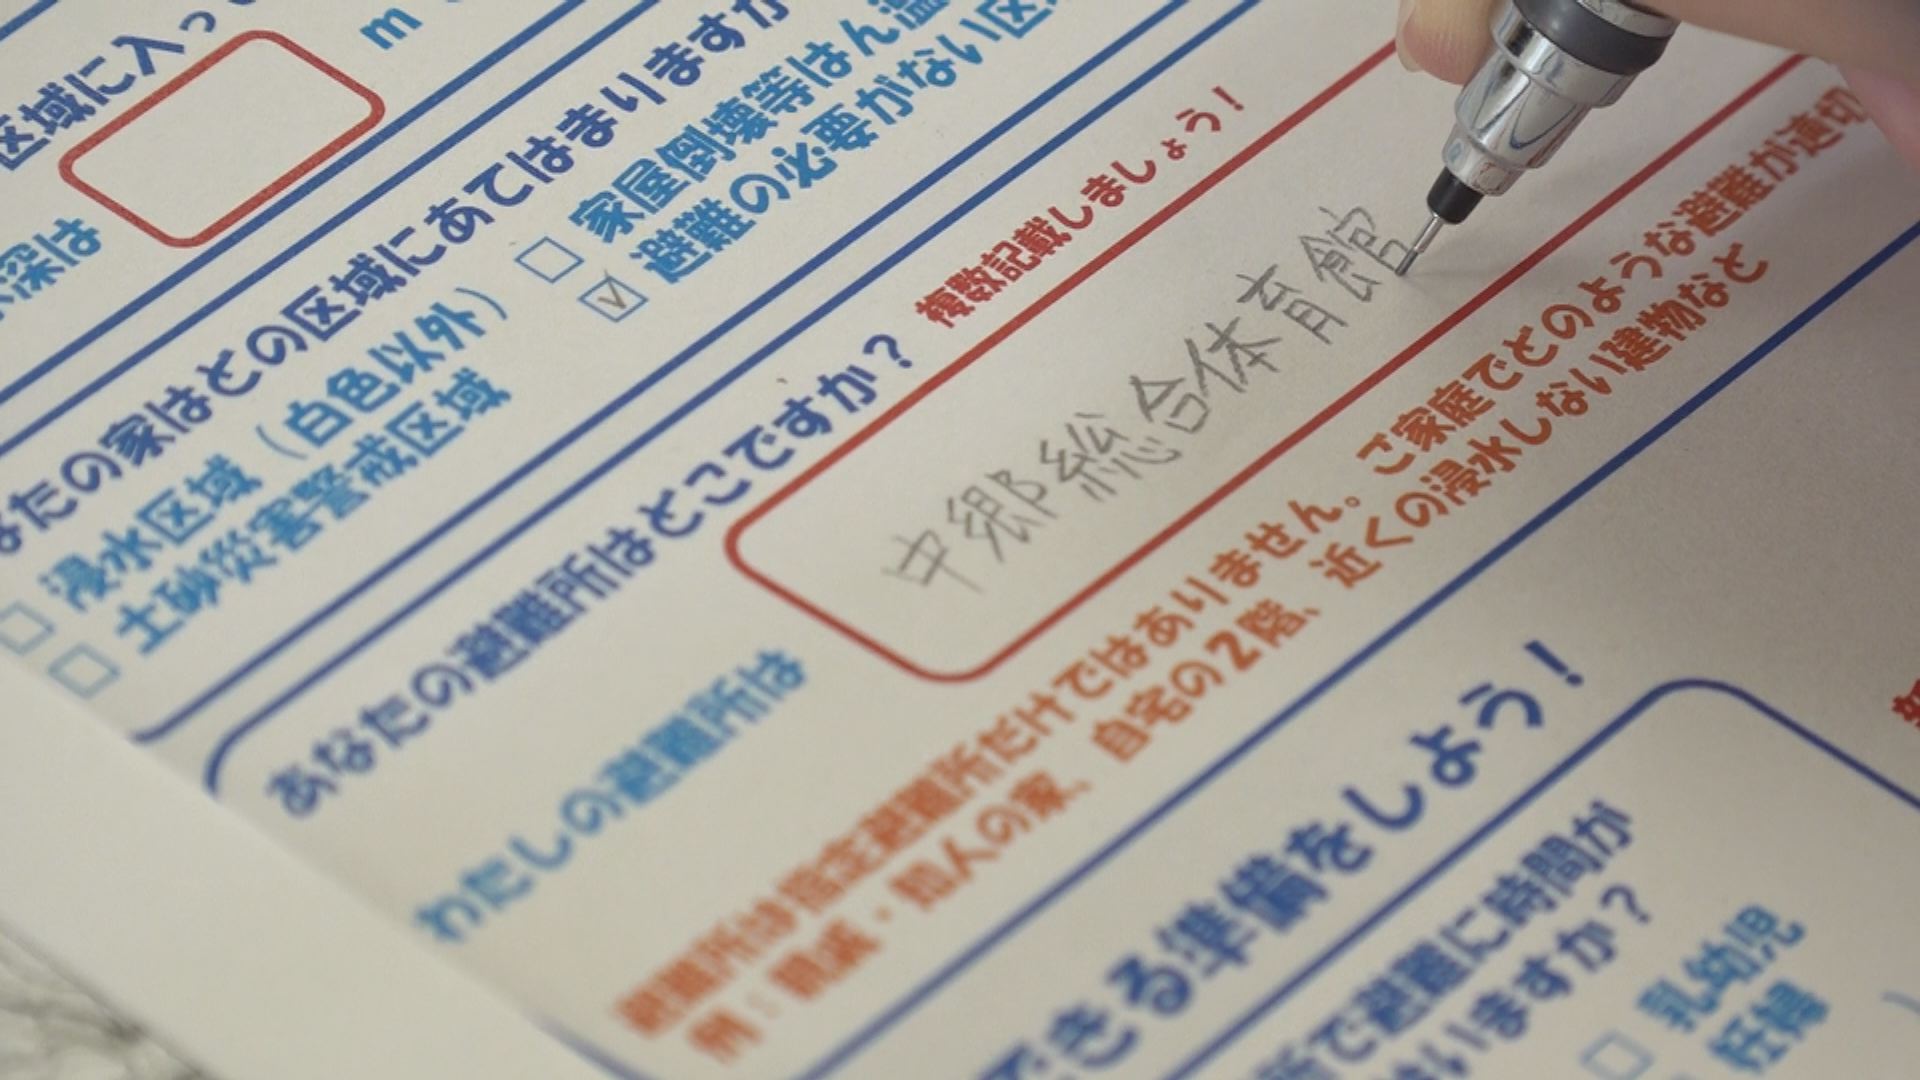 区域に入っ
水深は
m
あなたの家はどの区域にあてはまりますか
浸水区域（白色以外）
土砂災害警戒区域
家屋倒壊等はん濫
避難の必要がない区
あなたの避難所はどこですか？
複数記載しましょう！
わたしの避難所は
中郷総合体育館
避難所は指定避難所だけではありません。ご家庭でどのような避難が適切
例：親戚・知人の家、自宅の2階、近くの浸水しない建物など
できる準備をしよう！
所で避難に時間が
いますか？
乳幼児
妊婦